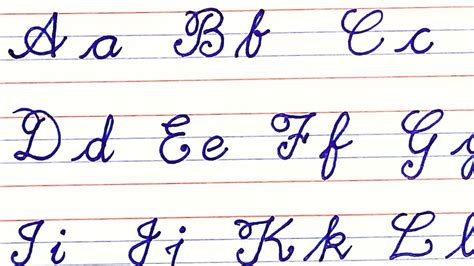 A a B b C c
D d E e F f G g
I i J j K k L l